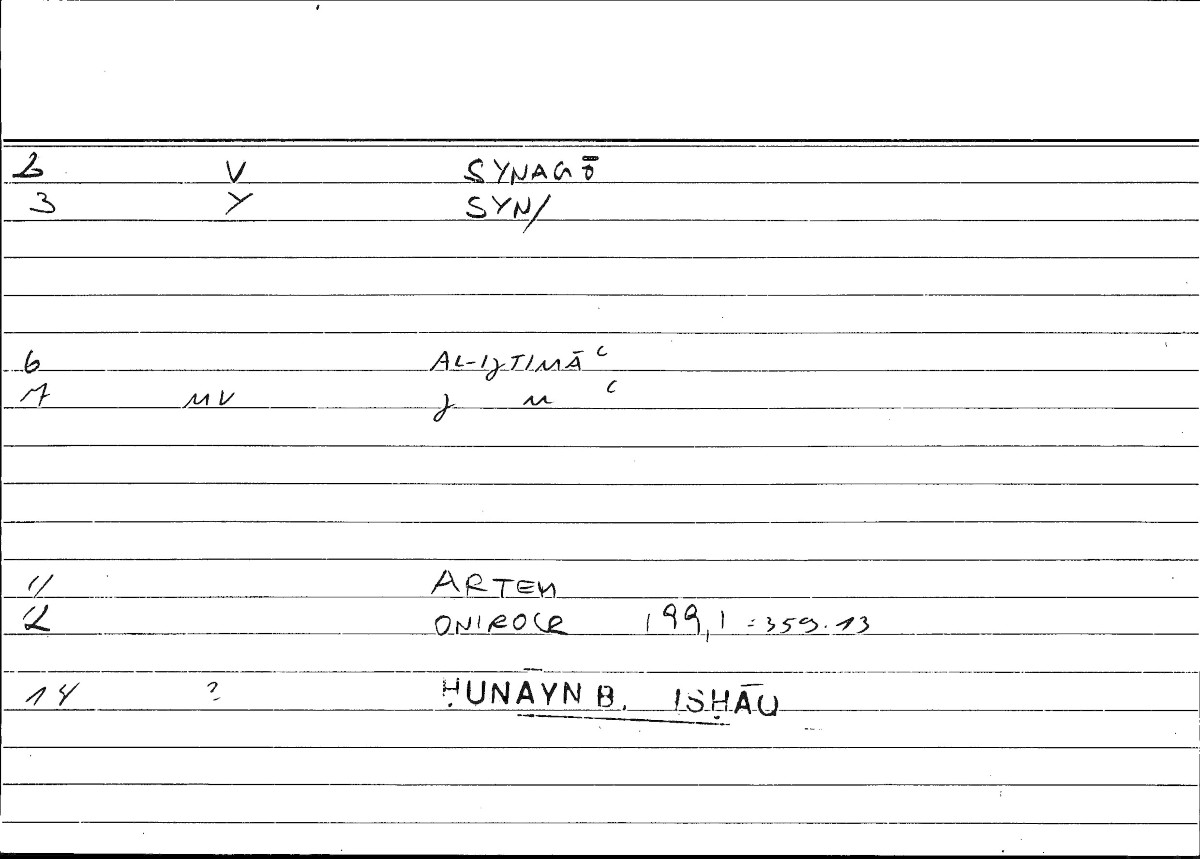 2 V SYNAGŌ
3 Y SYN/
6 AL-IJTIMĀʿ
7 MV J M ʿ
11 ARTEM
12 ONIROCR 199,1 = 359.13
14 ? ḤUNAYN B. ISḤĀQ